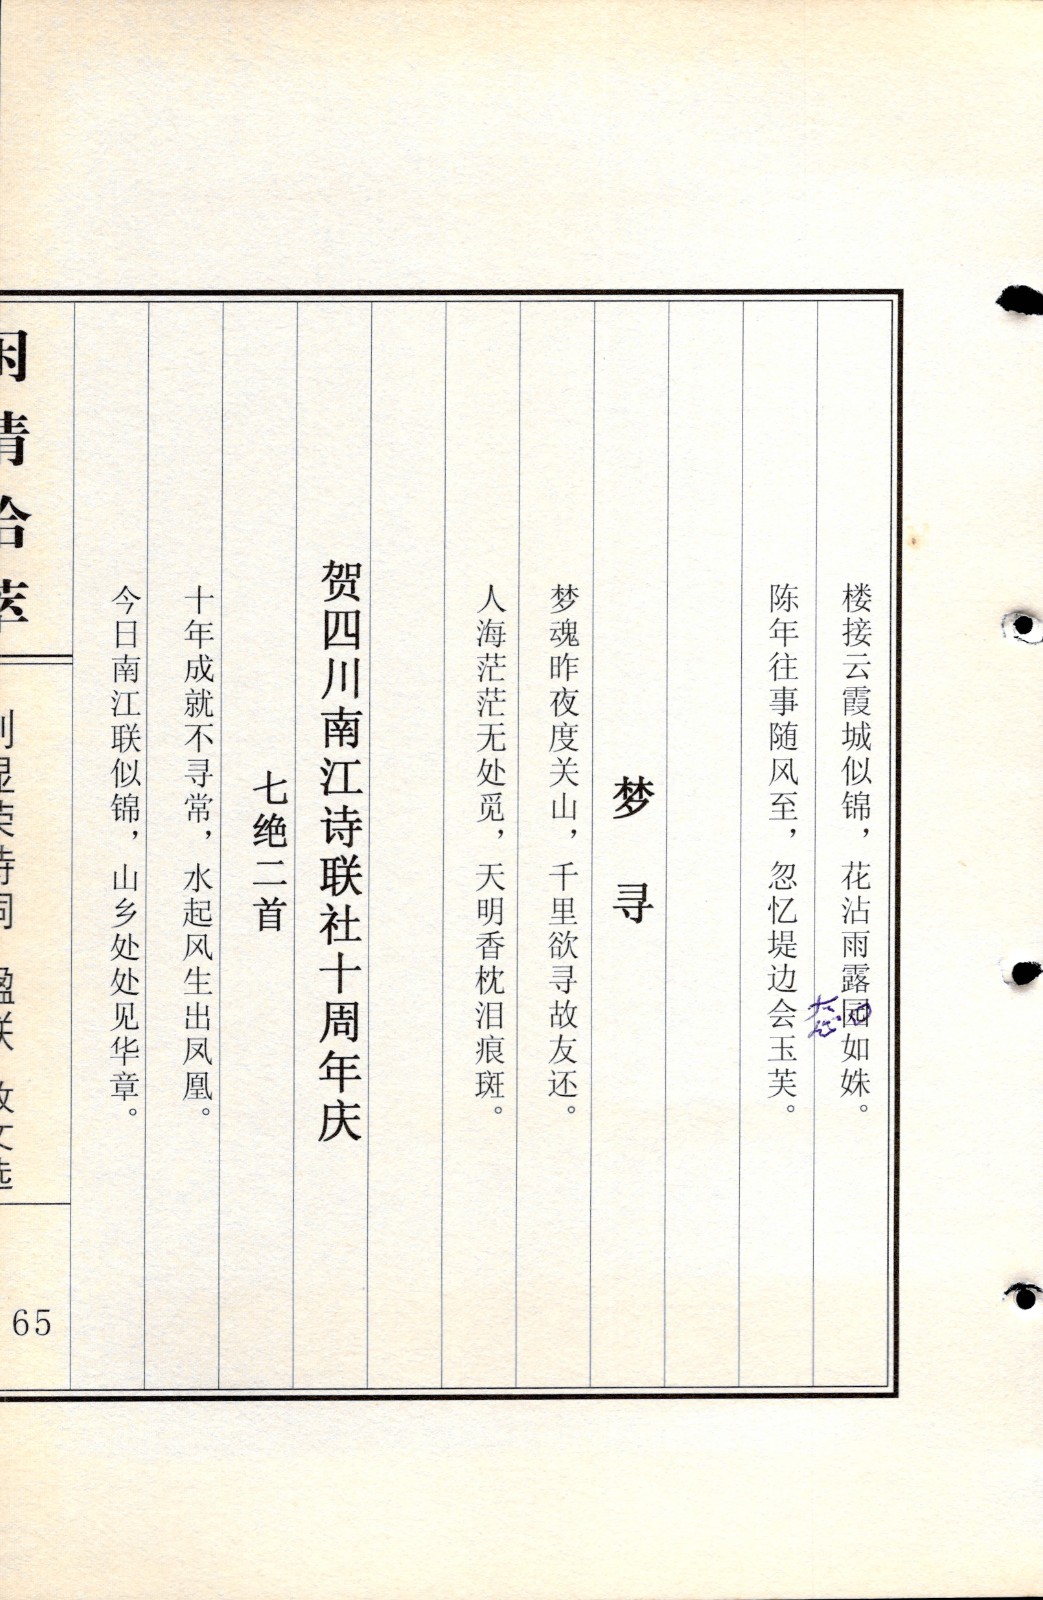 楼接云霞城似锦，花沾雨露园如姝。
陈年往事随风至，忽忆堤边会玉芙。
梦寻
梦魂昨夜度关山，千里欲寻故友还。
人海茫茫无处觅，天明香枕泪痕斑。
贺四川南江诗联社十周年庆
七绝二首
十年成就不寻常，水起风生出凤凰。
今日南江联似锦，山乡处处见华章。
65